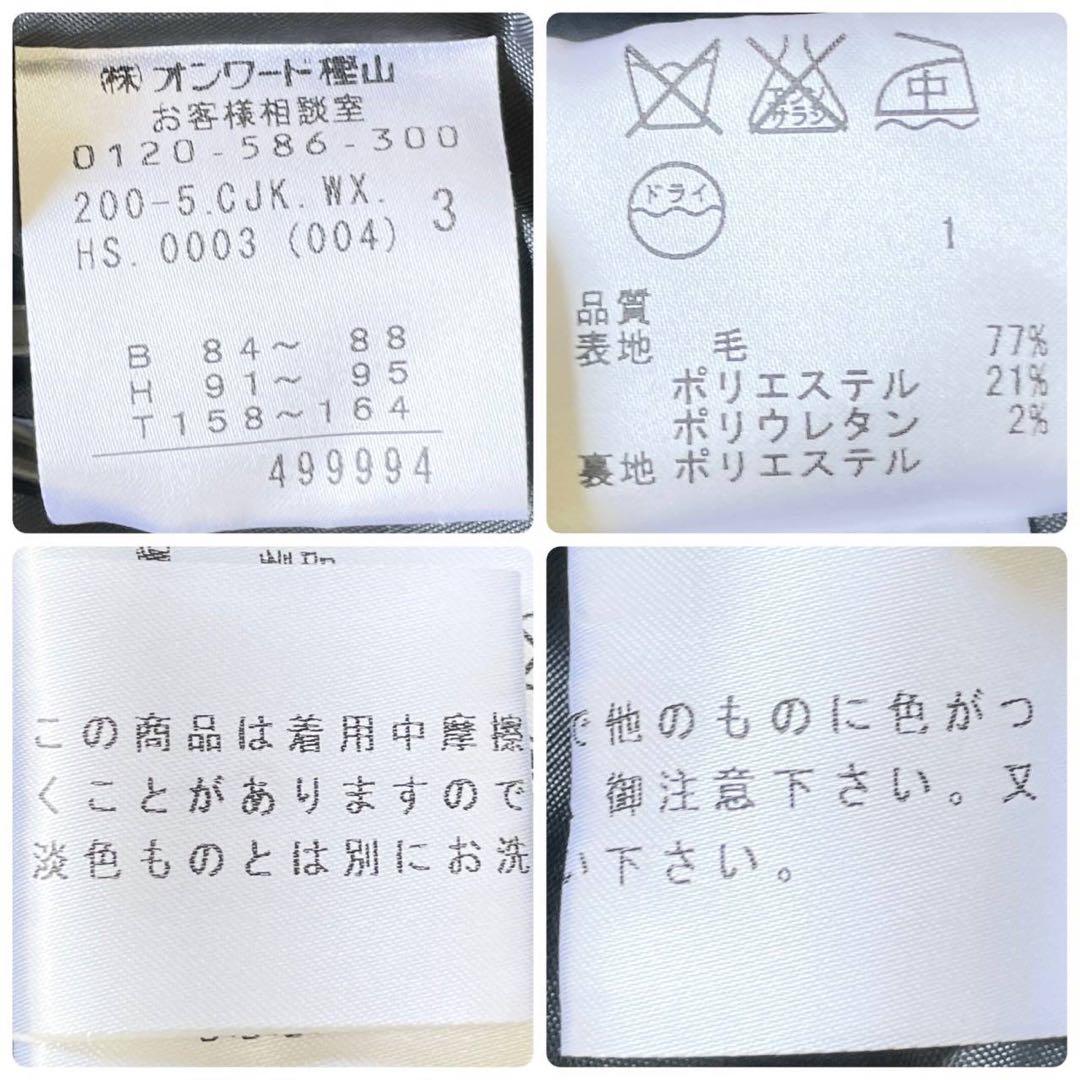 (株)オンワード樫山
お客様相談室
0120-586-300
200-5.CJK.WX.
HS.0003 (004)
3
B 84~ 88
H 91~ 95
T158~164
499994
エンソ
サラシ
中
ドライ
1
品質
表地 毛 77%
ポリエステル 21%
ポリウレタン 2%
裏地 ポリエステル
この商品は着用中摩擦
くことがありますので
淡色ものとは別にお洗
で他のものに色がつ
御注意下さい。又
い下さい。